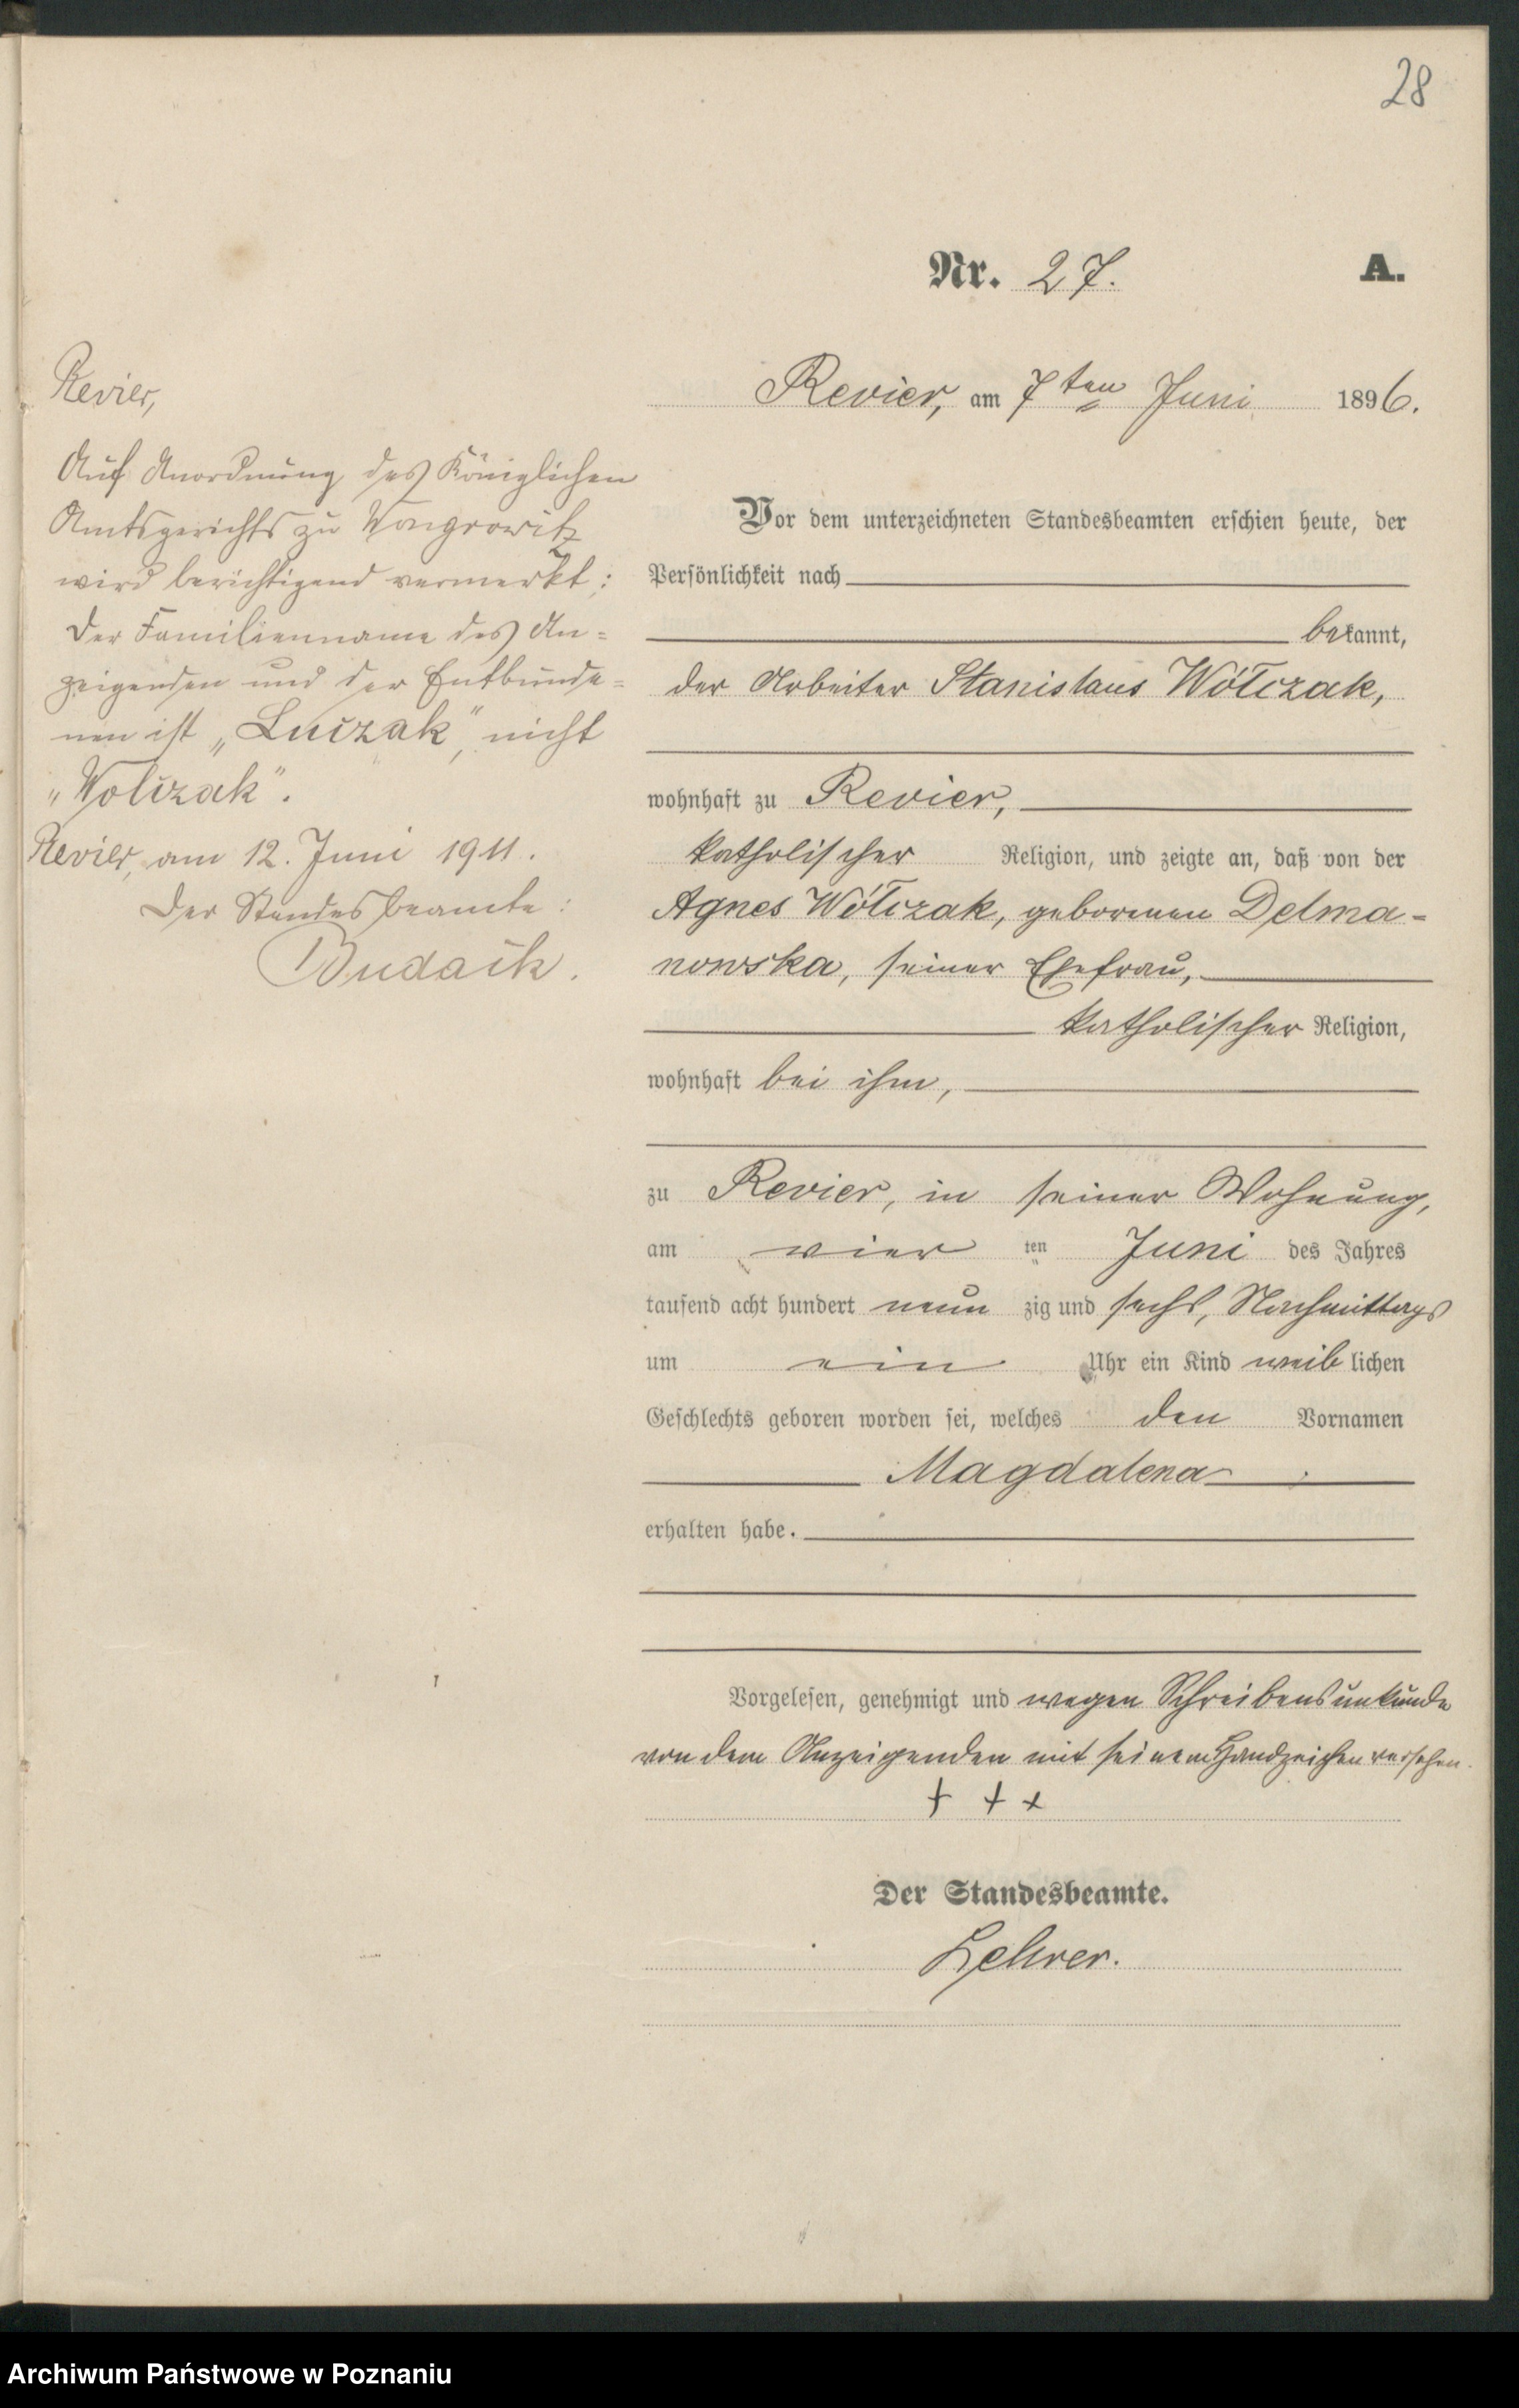 28
Nr. 27.
A.
Revier, am 7ten Juni 1896.
Vor dem unterzeichneten Standesbeamten erschien heute, der
Persönlichkeit nach
bekannt,
der Arbeiter Stanislaus Wółczak,
wohnhaft zu Revier,
katholischer Religion, und zeigte an, daß von der
Agnes Wółczak, geborenen Delma-
nowska, seiner Ehefrau,
katholischer Religion,
wohnhaft bei ihm,
zu Revier, in seiner Wohnung,
am vier ten Juni des Jahres
tausend acht hundert neun zig und sechs, Nachmittags
um ein Uhr ein Kind weib lichen
Geschlechts geboren worden sei, welches den Vornamen
Magdalena
erhalten habe.
Vorgelesen, genehmigt und wegen Schreibensunkunde
von dem Anzeigenden mit seinem Handzeichen versehen.
+ + +
Der Standesbeamte.
Lehrer.
Revier,
Auf Anordnung des Königlichen
Amtsgerichts zu Wongrowitz
wird berichtigend vermerkt:
Der Familienname des An=
zeigenden und der Entbunde=
nen ist „Luczak", nicht
„Wolczak".
Revier, am 12. Juni 1911.
Der Standesbeamte:
Budack.
Archiwum Państwowe w Poznaniu